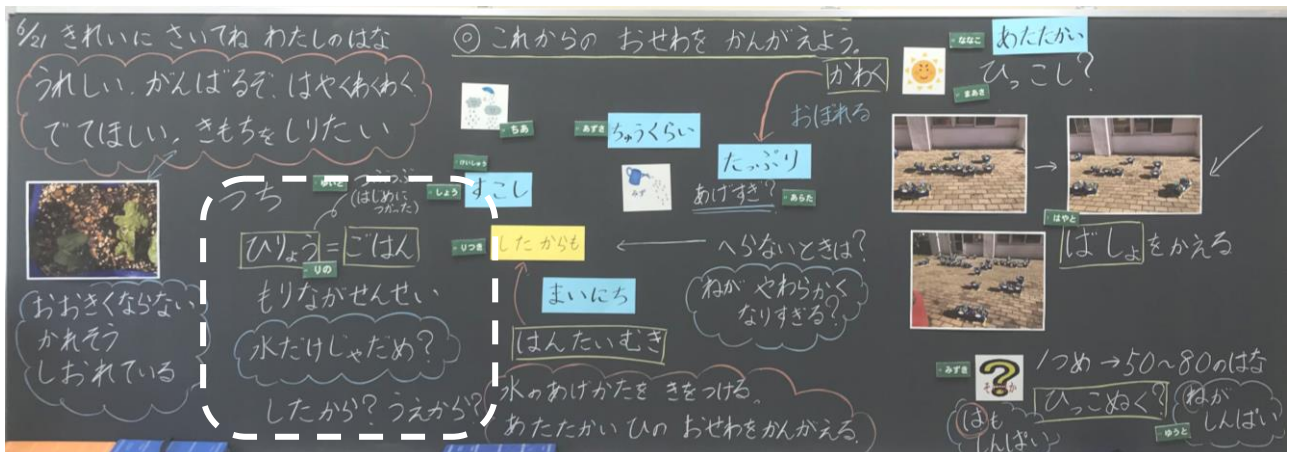 6/21 きれいに さいてね わたしのはな
うれしい、がんばるぞ、はやくわくわく
でてほしい、きもちをしりたい
おおきくならない
かれそう
しおれている
つち
ゆいと
つぶつぶ
(はじめに
つかった)
ひりょう=ごはん
りの
もりながせんせい
水だけじゃだめ?
したから?うえから?
◎ これからの おせわを かんがえよう。
ちあ
あずき
ちゅうくらい
けいしゅう
しょう
すこし
みず
かわく
おぼれる
たっぷり
あげすぎ?
あらた
りつき
したからも
へらないときは?
まいにち
ねが やわらかく
なりすぎる?
はんたいむき
水のあげかたを きをつける。
あたたかいひの おせわをかんがえる。
ななこ
あたたかい
まあき
ひっこし?
→
はやと
ばしょをかえる
みずき
?
そ か
1つめ→50~80のはな
ひっこぬく?
ゆうと
はも
しんぱい
ねが
しんぱい